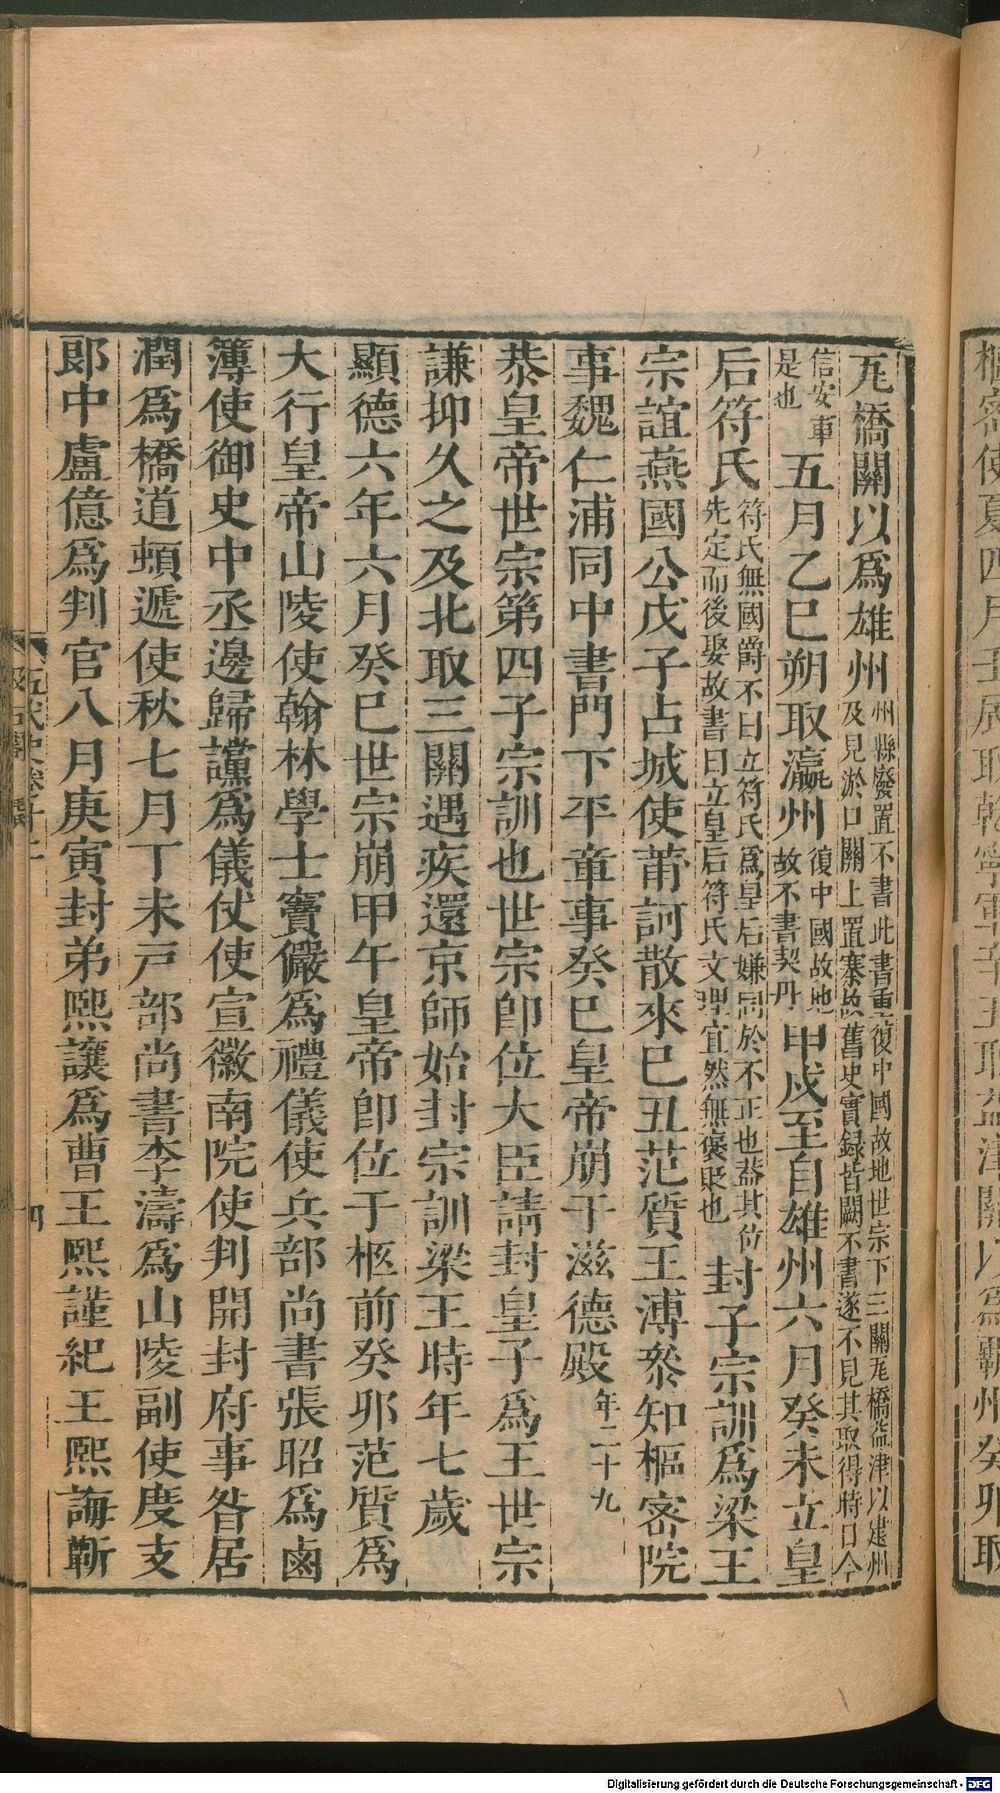 瓦橋關以爲雄州州縣廢置不書此書重復中國故地世宗下三關瓦橋益津以建州及見淤口關上置寨故舊史實録皆闕不書遂不見其取得時日今
信安軍是也五月乙巳朔取瀛州復中國故地故不書契丹甲戌至自雄州六月癸未立皇
后符氏符氏無國爵不曰立符氏爲皇后嫌同於不正也葢其位先定而後娶故書曰立皇后符氏文理宜然無褒貶也封子宗訓爲梁王
宗誼燕國公戊子占城使莆訶散來巳丑范質王溥叅知樞密院
事魏仁浦同中書門下平章事癸巳皇帝崩于滋德殿年三十九
恭皇帝世宗第四子宗訓也世宗卽位大臣請封皇子爲王世宗
謙抑久之及北取三關遇疾還京師始封宗訓梁王時年七歲
顯德六年六月癸巳世宗崩甲午皇帝卽位于柩前癸卯范質爲
大行皇帝山陵使翰林學士竇儼爲禮儀使兵部尚書張昭爲鹵
簿使御史中丞邊歸讜爲儀仗使宣徽南院使判開封府事昝居
潤爲橋道頓遞使秋七月丁未戸部尚書李濤爲山陵副使度支
郎中盧億爲判官八月庚寅封弟熙讓爲曹王熙謹紀王熙誨蘄
五代史卷十二
四
樞密使夏四月壬辰取乾寧軍辛丑取益津關以爲霸州癸卯取
Digitalisierung gefördert durch die Deutsche Forschungsgemeinschaft - DFG